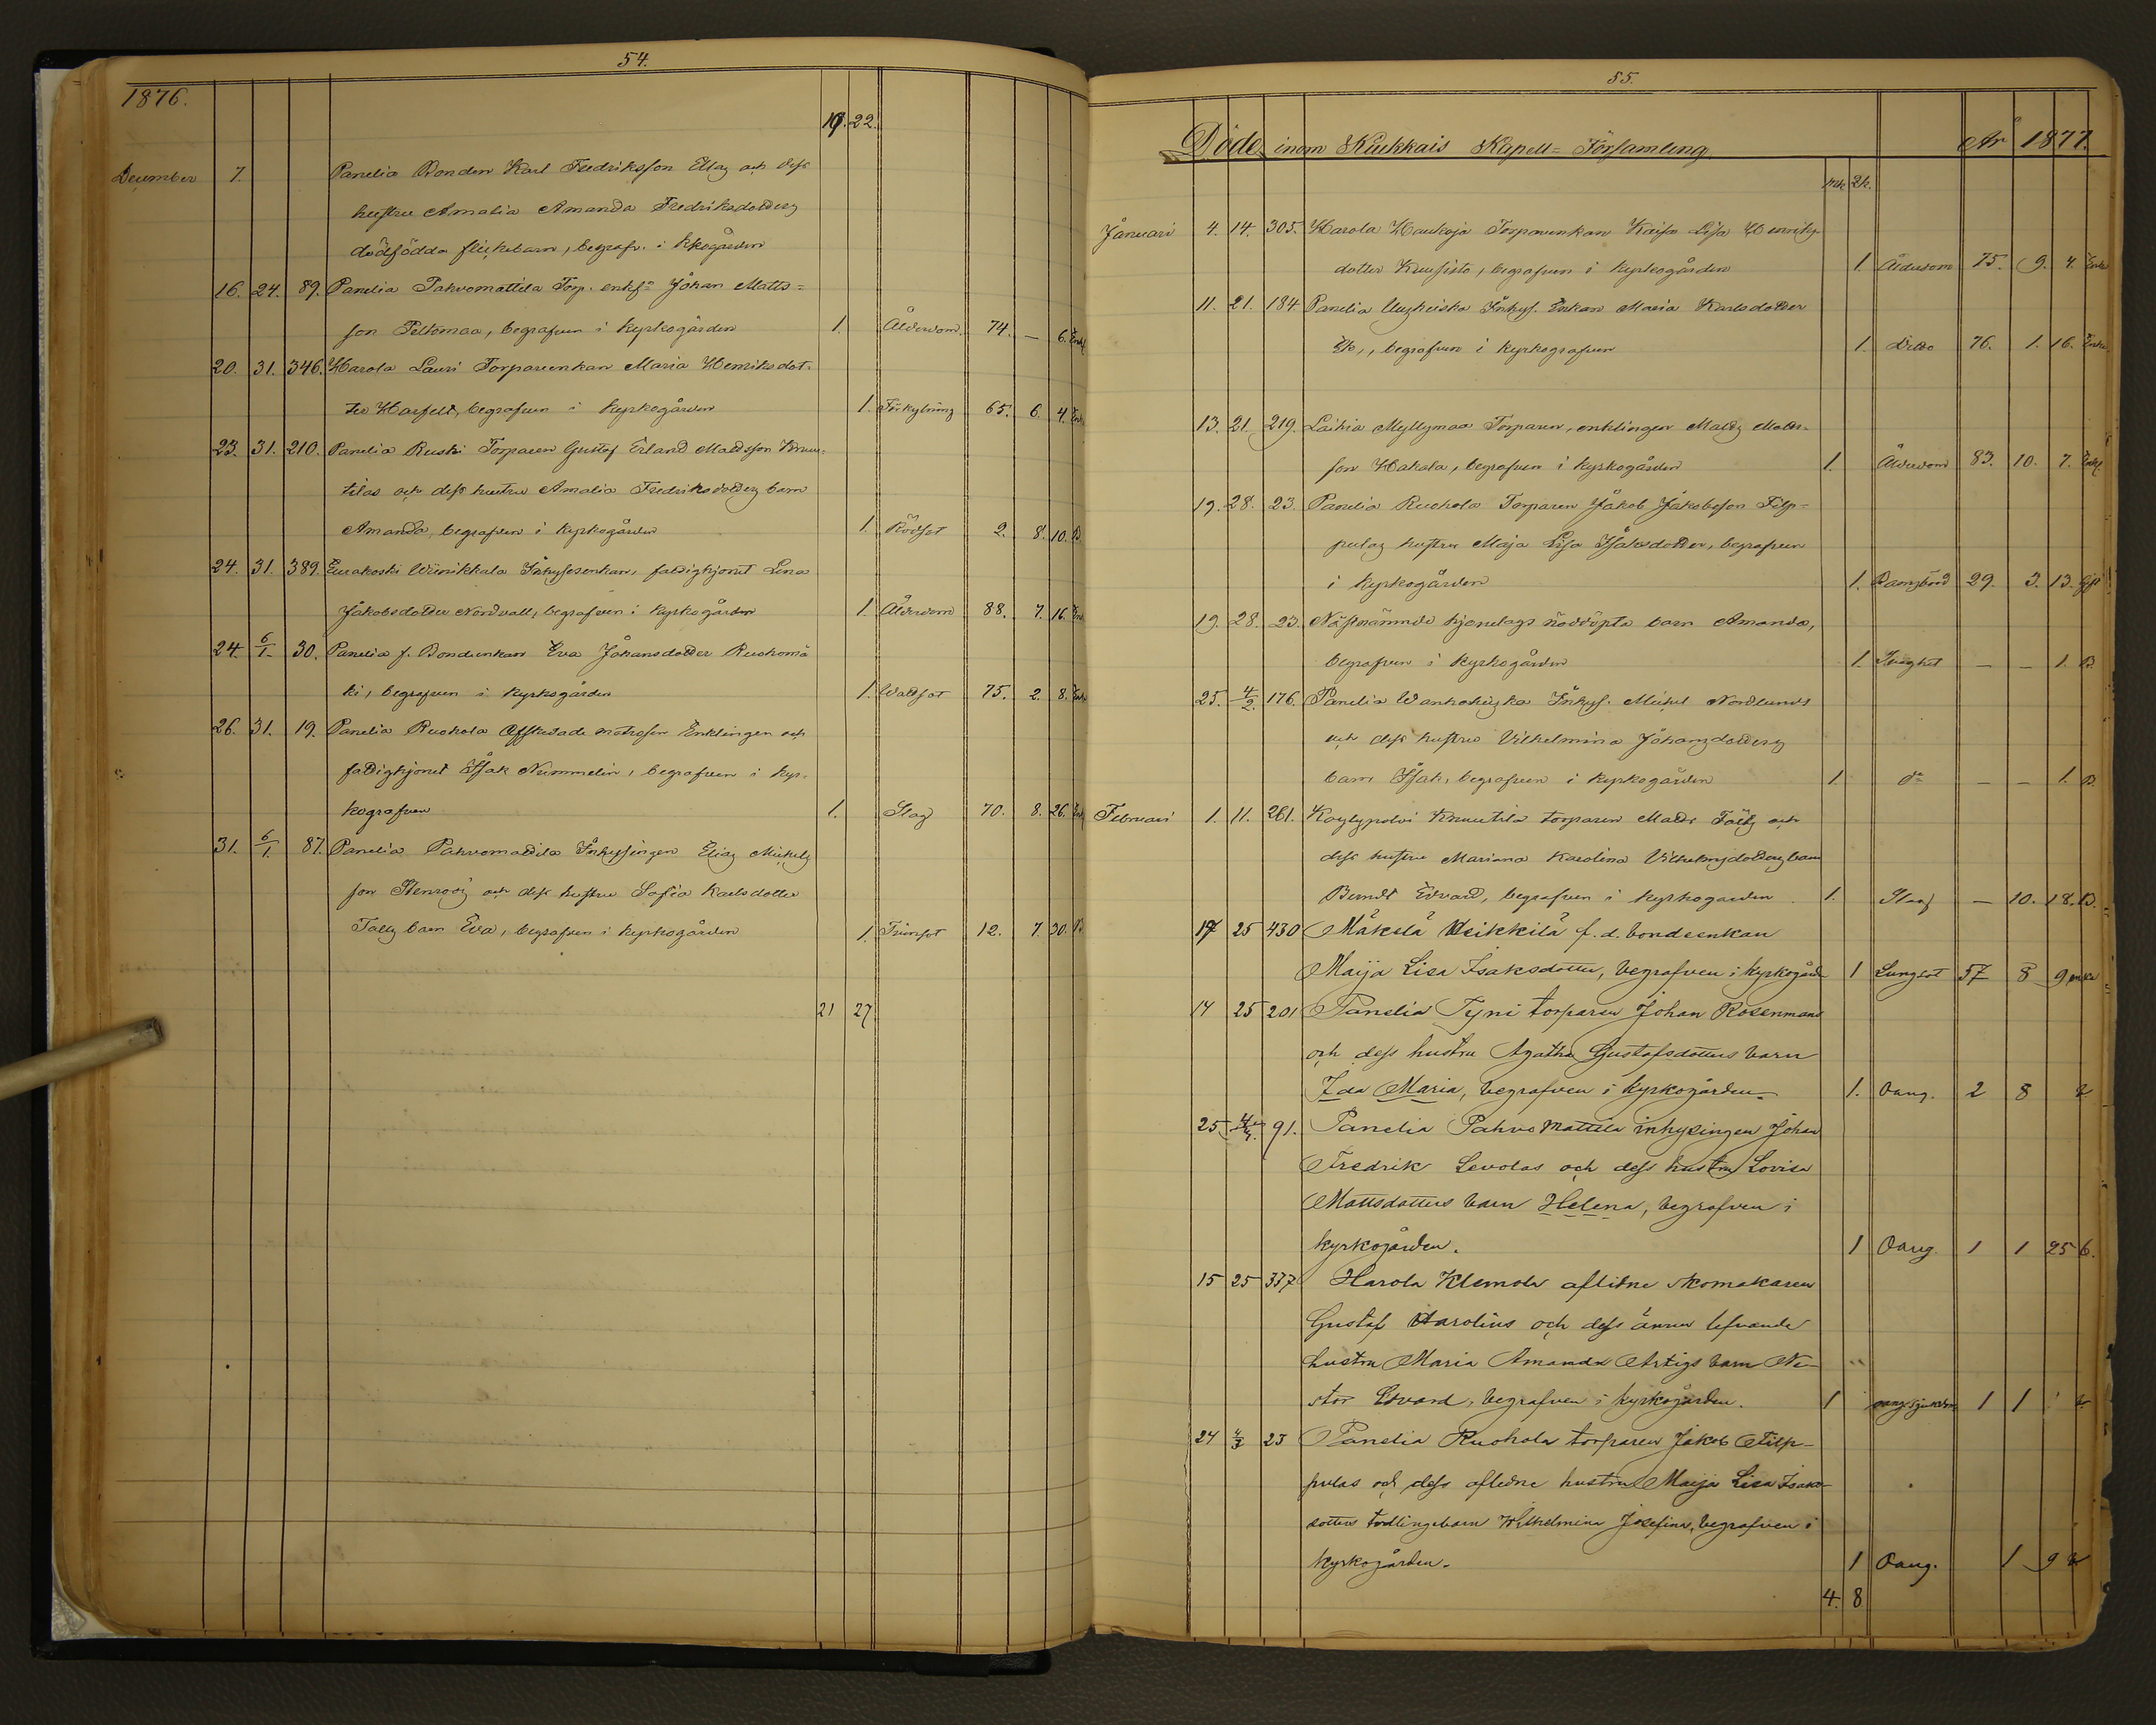 54.
1876.
19. 22.
December 7. Panelia Bonden Karl Fredriksson Ellag och dess
hustru Amalia Amanda Fredriksdotters
dödfödda flickebarn, begrafv. i kkogården
16. 24. 89. Panelia Pahvomattila Torp. enkl. Johan Matts=
son Peltomaa, begrafven i kyrkogården 1. Ålderdom. 74. — 6. Enkl
20. 31. 346. Harola Lauri Torpareenkan Maria Henriksdot-
ter Harfelt, begrafven i kyrkogården 1. Förkylning 65. 6. 4. Enk
23. 31. 210. Panelia Ruski Torparen Gustaf Erland Mattsson Knuu-
tilas och dess hustru Amalia Fredriksdotters barn
Amanda, begrafven i kyrkogården 1. Rödsot 2. 8. 10. B.
24. 31. 389. Eurakoski Wiinikkala Inhysesenkan, fattighjonet Lena
Jakobsdotter Nordvall, begrafven i kyrkogården 1. Ålderdom 88. 7. 16. Enk
24. 6/1. 30. Panelia f. Bondeenkan Eva Johansdotter Ruohomä
ki, begrafven i kyrkogården 1. Wattsot 75. 2. 8. Enk
26. 31. 19. Panelia Ruohola Afskedade matrosen Enklingen och
fattighjonet Isak Nummelin, begrafven i kyr-
kografven 1. Slag 70. 8. 26. Enk
31. 6/1. 87. Panelia Pahvomattila Inhysingen Elias Mickels
son Stenroos och dess hustru Sofia Karlsdotter
Talls barn Eva, begrafven i kyrkogården 1. Trånsot 12. 7. 30. B
21 27
55.
Döde inom Kiukkais Kapell=Församling År 1877.
mk. qk.
Januari 4. 14. 305. Harola Haukoja Torpareenkan Kaisa Lisa Henriks
dotter Kuusisto, begrafven i kyrkogården 1. Ålderdom 75. 9. 4. Enka
11. 21. 184. Panelia Inhys. Enkan Maria Karlsdotter
Ek, begrafven i kyrkografven 1. Ditto 76. 1. 16. Enka
13. 21. 219. Laihia Myllymaa Torparen, enklingen Matts Matts-
son Hakala, begrafven i kyrkogården 1. Ålderdom 83. 10. 7. Enkl
19. 28. 23. Panelia Ruohola Torparen Jakob Jakobsson Filp-
pulas hustru Maja Lisa Isaksdotter, begrafven
i kyrkogården 1. Barnsbörd 29. 3. 13. Gift
19. 28. 23. Näsnämnde hjonelags nöddöpta barn Amanda,
begrafven i kyrkogården 1. Svaghet — — 1. B.
25. 4/2. 176. Panelia Inhys. Mickel Nordlunds
och dess hustru Vilhelmina Johansdotters
barn Isak, begrafven i kyrkogården 1. do — — 1. B.
Februari 1. 11. 261. Köylypolvi Knuutila torparen Matts Tälls och
dess hustru Mariana Karolina Vilhelmsdotters barn
Berndt Edvard, begrafven i kyrkogården. 1. Slag — 10. 18. B.
17 25 430 Mäkelä Heikkilä f. d. bondeenkan
Maija Lisa Isaksdotter, begrafven i kyrkogårde 1 Lungsot 57 8 9 enka
14 25 201 Panelia Tyni torparen Johan Rosenmans
och dess hustru Agatha Gustafsdotters barn
Ida Maria, begrafven i kyrkogården. 1. Oang. 2 8 b
25 91. Panelia Pahvomattila inhysingen Johan
Fredrik Levolas och dess hustru Lovisa
Mattsdotters barn Helena, begrafven i
kyrkogården. 1 Oang. 1 1 25 b.
15 25 337 Harola Klemola aflidne skomakaren
Gustaf Harolius och dess ännu lefvande
hustru Maria Amanda Artigs barn Ne-
stor Edvard, begrafven i kyrkogården. 1 oang. sjukdom 1 1 b
24 4/3 23 Panelia Ruohola torparen Jakob Filp-
pulas och dess aflidne hustru Maija Lisa Isaks-
dotters tvillingebarn Wilhelmina Josefina, begrafven i
kyrkogården. 1 Oang. 1 9 b
4. 8